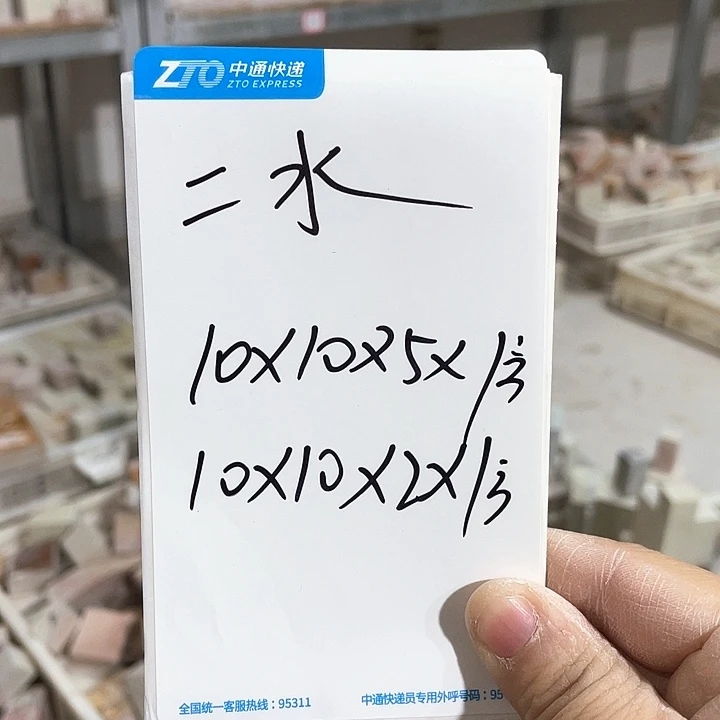 ZTO 中通快递
ZTO EXPRESS
二水
10×10×5×1方
10×10×2×1方
全国统一客服热线：95311
中通快递员专用外呼号码：95